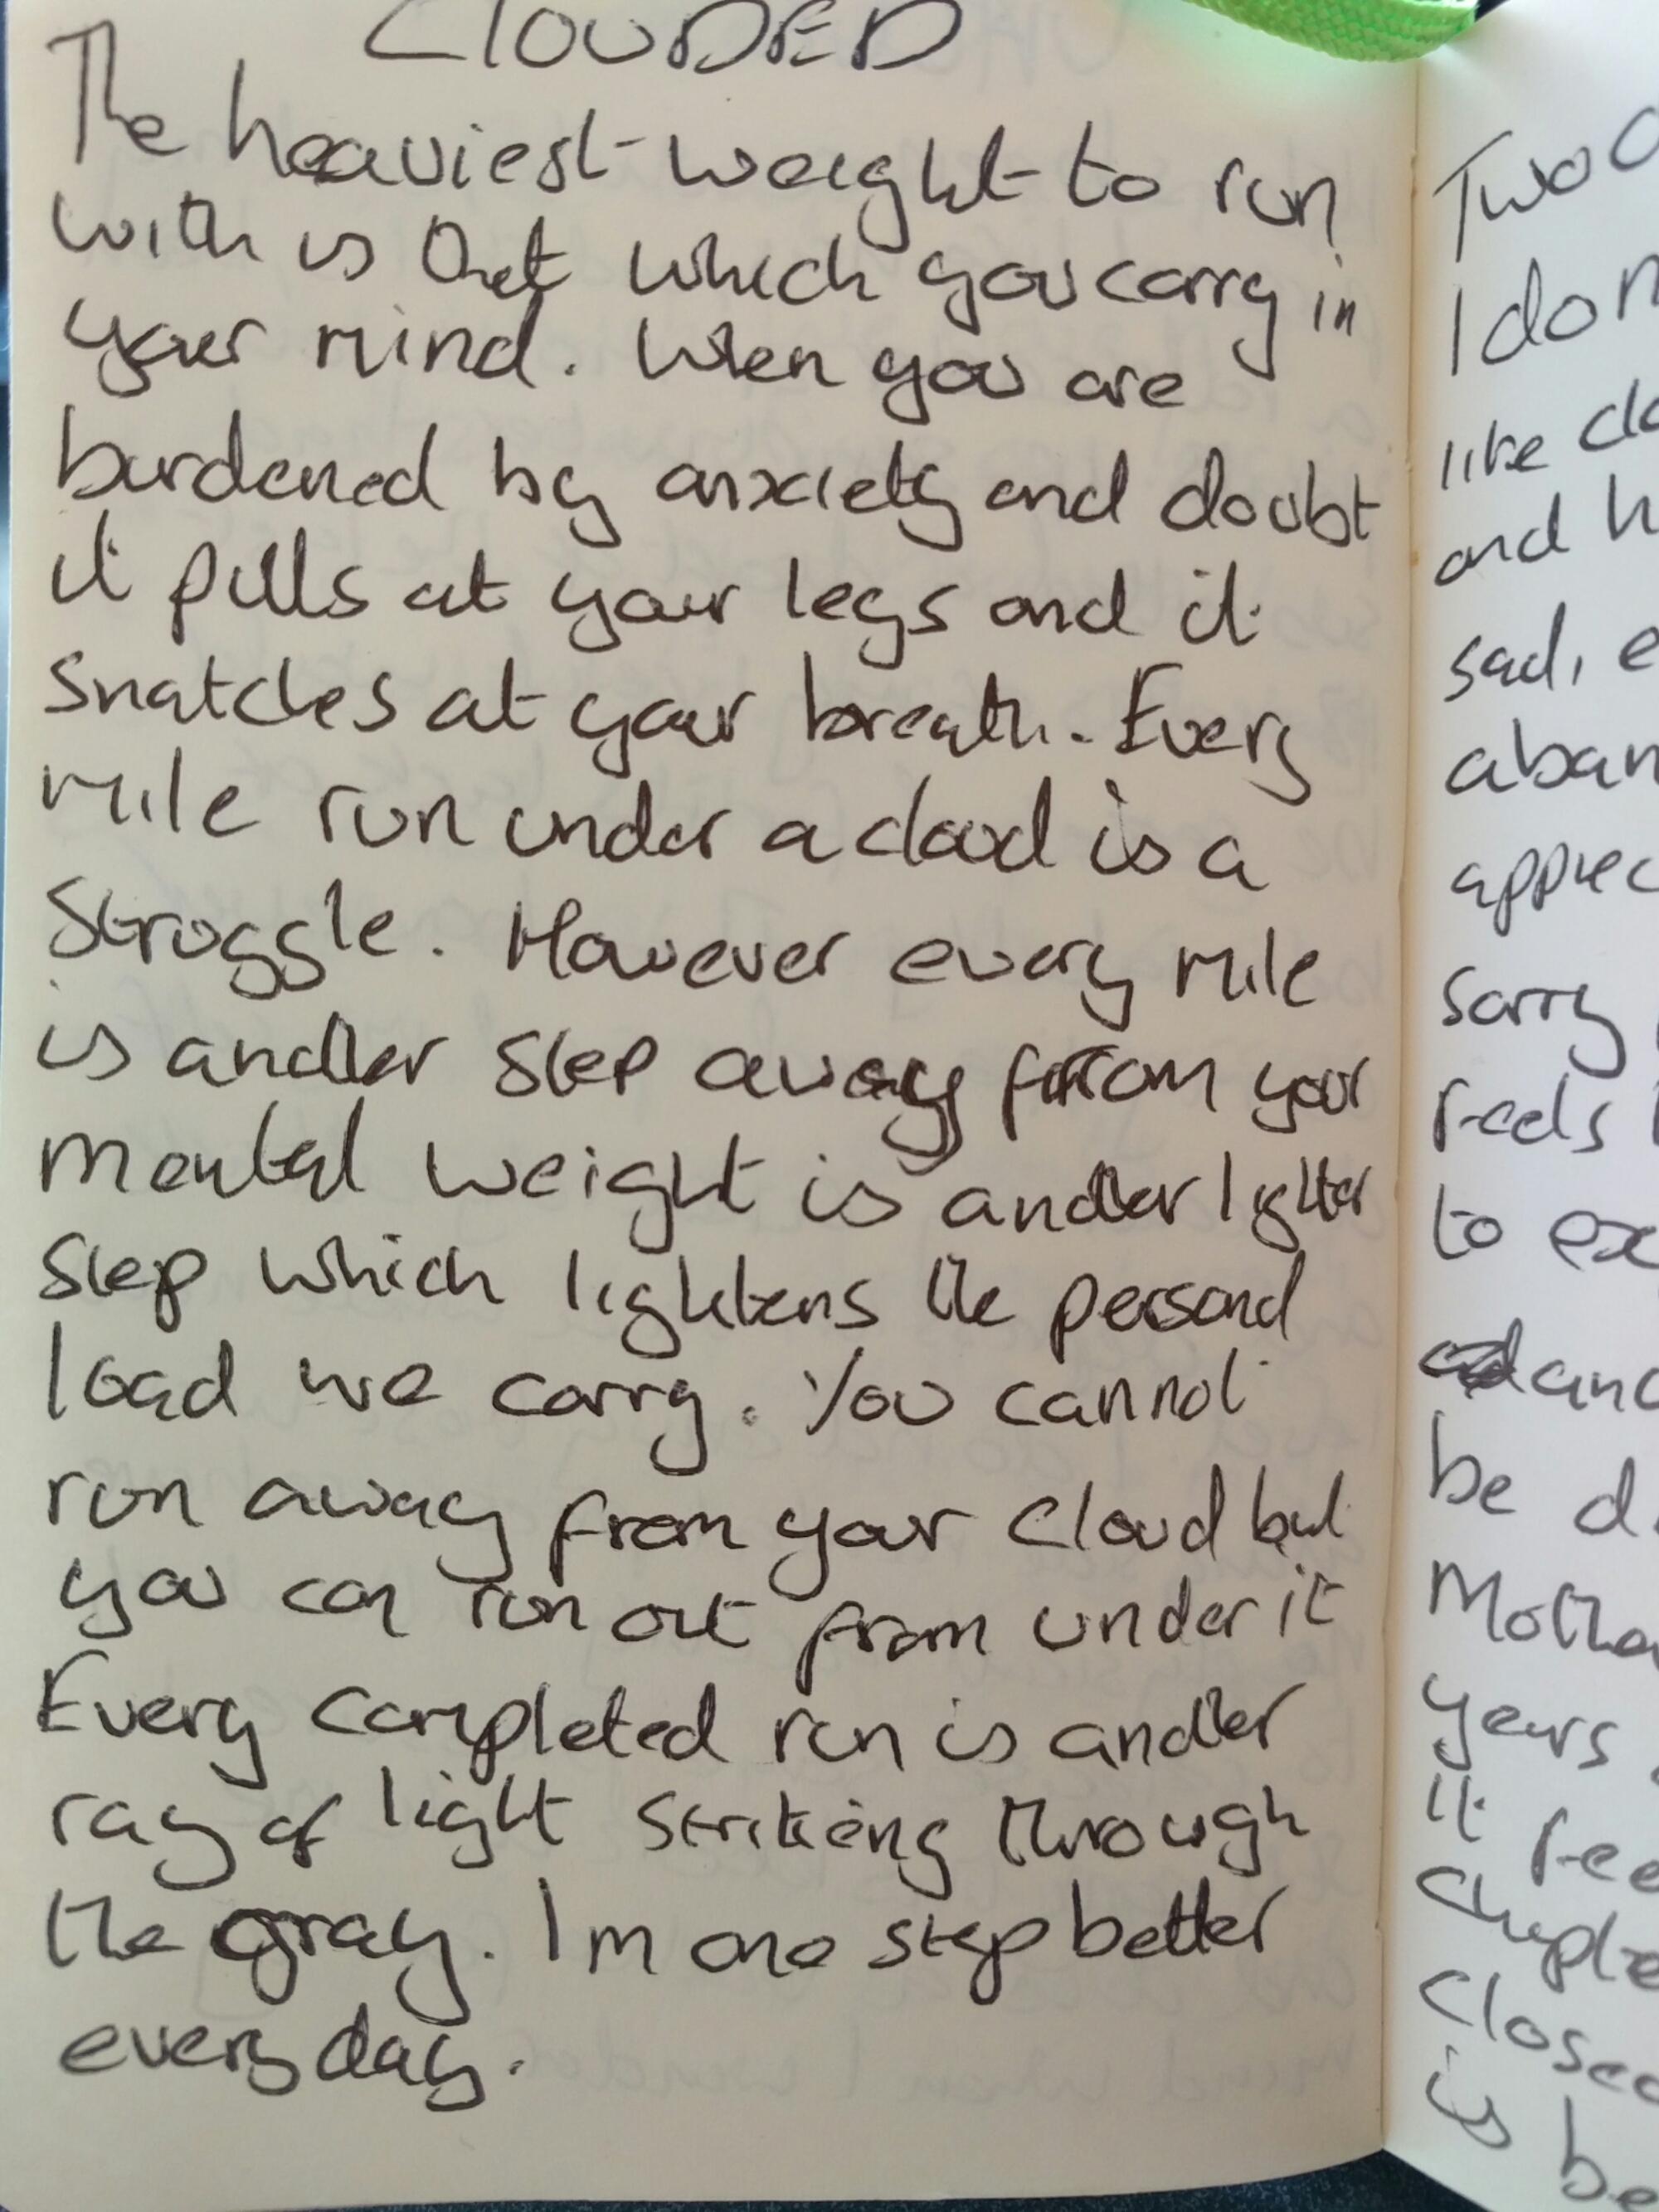 CLOUDED
The heaviest weight to run
with is that which you carry in
your mind. When you are
burdened by anxiety and doubt
it pulls at your legs and it
snatches at your breath. Every
mile run under a cloud is a
struggle. However every mile
is another step away from your
mental weight is another lighter
step which lightens the personal
load we carry. You cannot
run away from your cloud but
you can run out from under it
Every completed run is another
ray of light striking through
the gray. Im one step better
every day.
Two
I do n
like clo
and h
sad, e
aban
apprec
sorry
feels
to ex
and
be d
Mothe
years
It fee
chapte
closed
is be